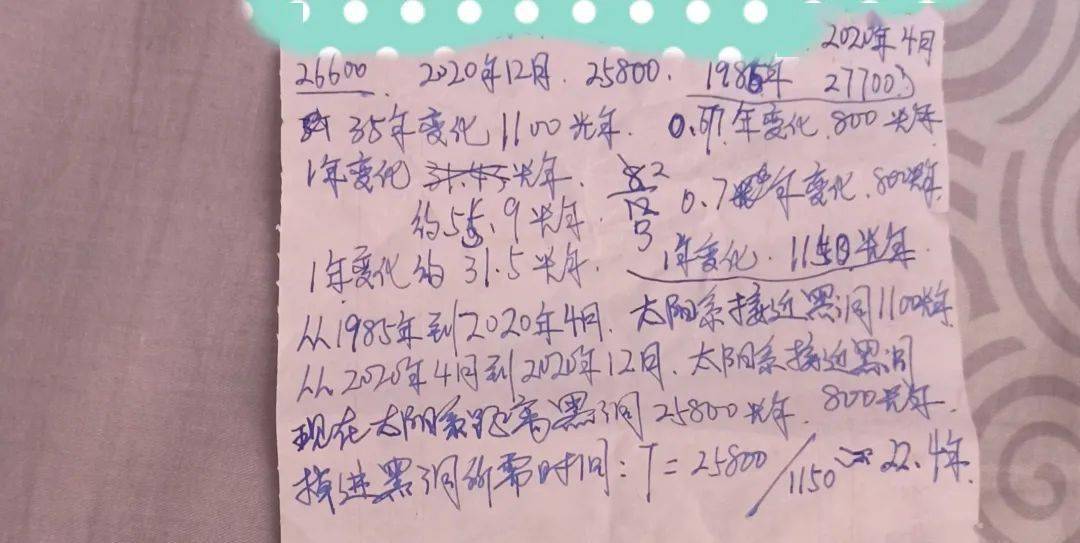 2020年4月
26600 2020年12月. 25800. 1985年 27700
35年变化1100光年. 0.67年变化.800光年
1年变化 31.43光年. 8 2 12 3 0.7年变化.800光年.
约55.9光年.
1年变化约31.5光年. 1年变化.1150光年.
从1985年到2020年4月.太阳系接近黑洞1100光年
从2020年4月到2020年12月.太阳系接近黑洞
现在太阳系距离黑洞25800光年. 800光年.
掉进黑洞所需时间:T=25800/1150≈22.4年.